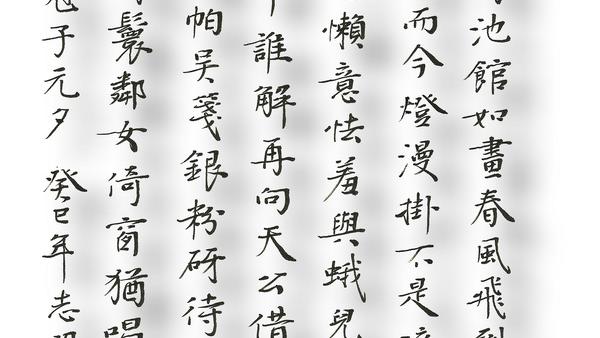 池館如畫春風飛到
而今燈漫掛不是
懶意怯羞與蛾兒
誰解再向天公借
帕吴箋銀粉砑待
鬟鄰女倚窗猶唱
子元夕 癸巳年志